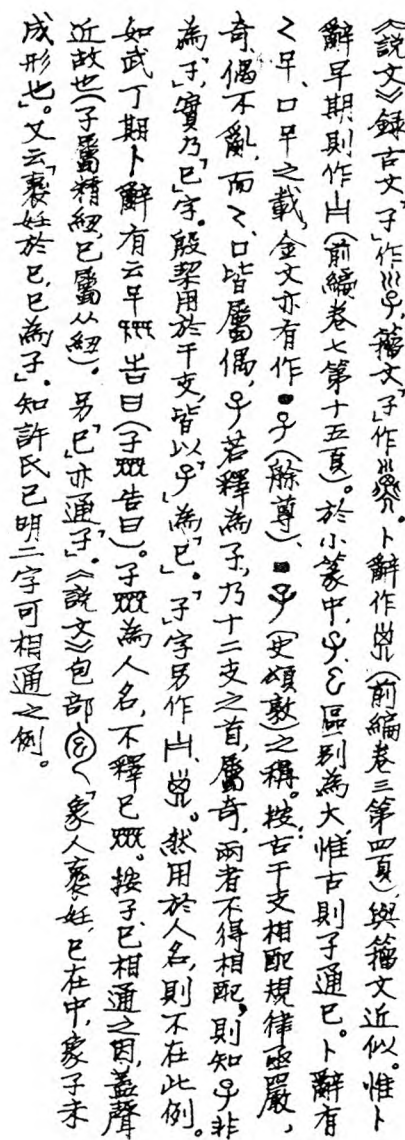 《說文》錄古文「子」作𡿹,籀文「子」作𢀇。卜辭作(前編卷三第四頁),與籀文近似。惟卜
辭早期則作(前編卷七第十五頁)。於小篆中,區別為大,惟古則子通巳。卜辭有
之載,金文亦有作(艅尊)、(頌敦)之稱。按:古干支相配規律亟嚴,
奇偶不亂,而皆屬偶,若釋為子,乃十二支之首,屬奇,兩者不得相配,則知非
為「子」,實乃「巳」字。殷栔用於干支,皆以為「巳」。「子」字另作。然用於人名,則不在此例。
如武丁期卜辭有云告曰(子告曰)。子為人名,不釋巳。按子、巳相通之因,蓋聲
近故也(子屬精紐,巳屬从紐)。另「巳」亦通「子」。《說文》包部「象人褱妊,巳在中,象子未
成形也」。又云「褱妊於巳,巳為子」。知許氏已明二字可相通之例。